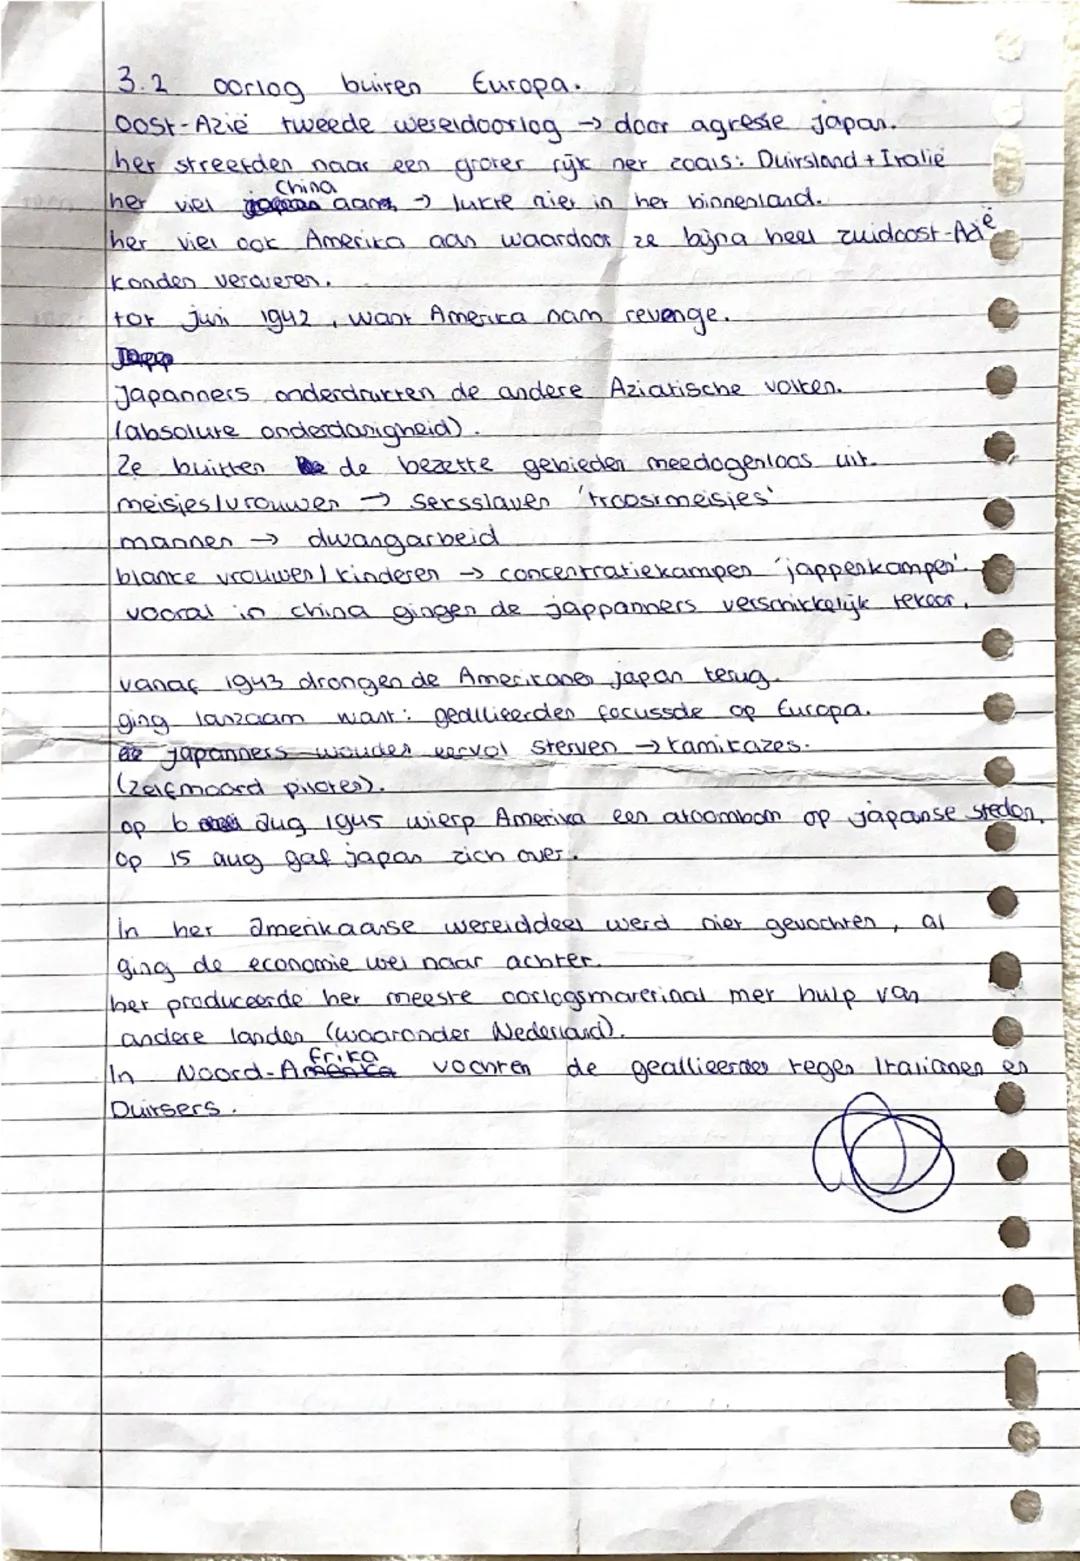 3.2 oorlog buiten Europa.
Oost-Azië tweede wereldoorlog → door agresie Japan.
het streefden naar een groter rijk net zoals: Duitsland + Italië
China
het viel aan, → lukte niet in het binnenland.
het viel ook Amerika aan waardoor ze bijna heel zuidoost-Azië
konden veroveren.
tot juni 1942, want Amerika nam revenge.
Japanners onderdrukten de andere Aziatische volken.
(absolute onderdanigheid).
Ze buitten de bezette gebieden meedogenloos uit.
meisjes/vrouwen → seksslaven 'troostmeisjes'
mannen → dwangarbeid
blanke vrouwen/kinderen → concentratiekampen 'jappenkampen'.
vooral in china gingen de jappanners verschrikkelijk tekoor.
vanaf 1943 drongen de Amerikanen japan terug.
ging lanzaam want: geallieerden focussde op Europa.
japanners wouden eervol sterven → kamikazes.
(zelfmoord piloten).
op 6 aug 1945 wierp Amerika een atoombom op japanse steden.
op 15 aug gaf japan zich over.
In het amerikaanse werelddeel werd niet gevochten, al
ging de economie wel naar achter.
het produceerde het meeste oorlogsmateriaal met hulp van
andere landen (waaronder Nederland).
In Noord-Afrika vochten de geallieerden tegen Italianen en
Duitsers.